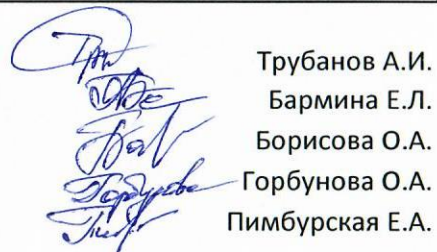 Трубанов А.И.
Бармина Е.Л.
Борисова О.А.
Горбунова О.А.
Пимбурская Е.А.